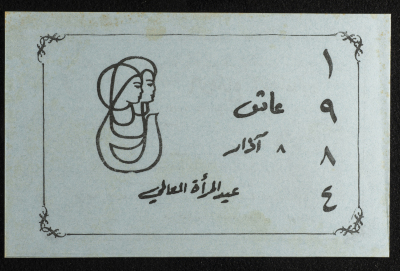 ١
٩
٨
٤
عاش
٨ آذار
عيد المرأة العالمي